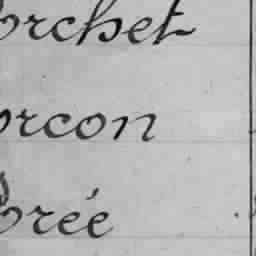 orchet
orcon
orée